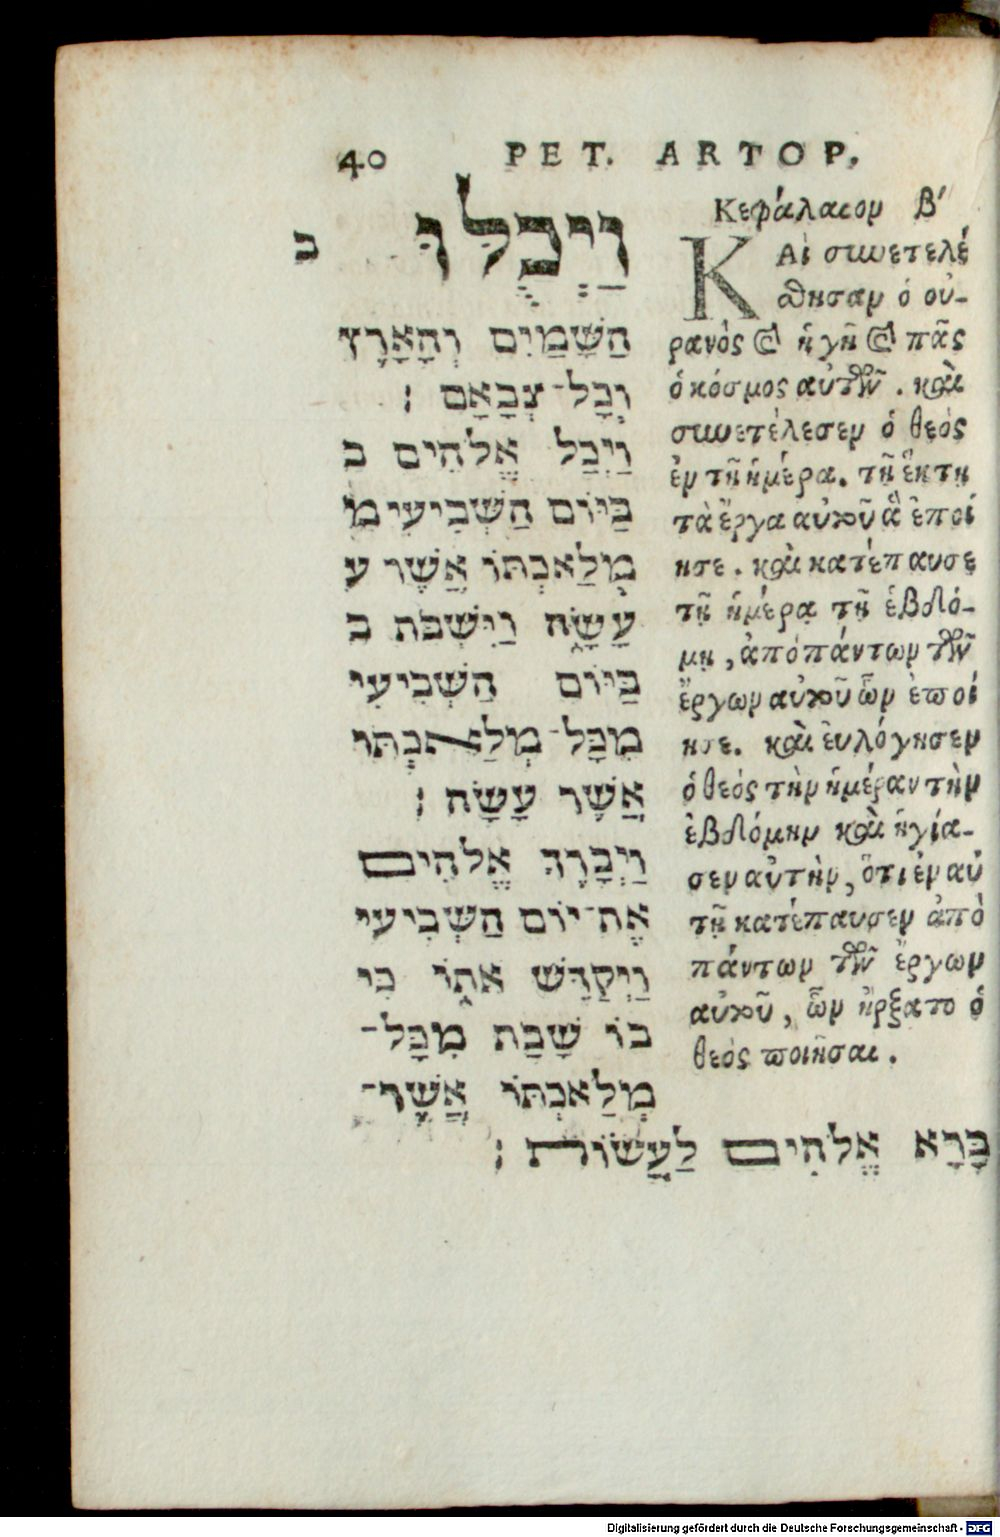 40 PET. ARTOP.
ב
וַיְכֻלּוּ
הַשָּׁמַיִם וְהָאָרֶץ
וְכָל־צְבָאָם ׃
וַיְכַל אֱלֹהִים ב
בַּיּוֹם הַשְּׁבִיעִי מִ
מְלַאכְתּוֹ אֲשֶׁר ע
עָשָׂה וַיִּשְׁבֹּת ב
בַּיּוֹם הַשְּׁבִיעִי
מִכָּל־מְלַאכְתּוֹ
אֲשֶׁר עָשָׂה ׃
וַיְבָרֶךְ אֱלֹהִים
אֶת־יוֹם הַשְּׁבִיעִי
וַיְקַדֵּשׁ אֹתוֹ כִּי
בוֹ שָׁבַת מִכָּל־
מְלַאכְתּוֹ אֲשֶׁר־
בָּרָא אֱלֹהִים לַעֲשׂוֹת ׃
Κεφάλαιον β′
ΚΑὶ συνετελέ
σθησαν ὁ οὐ-
ρανὸς καὶ ἡ γῆ καὶ πᾶς
ὁ κόσμος αὐτῶν. καὶ
συνετέλεσεν ὁ θεός
ἐν τῇ ἡμέρᾳ. τῇ ἕκτῃ
τὰ ἔργα αὐτοῦ ἃ ἐποί
ησε. καὶ κατέπαυσε
τῇ ἡμέρᾳ τῇ ἑβδό-
μῃ, ἀπὸ πάντων τῶν
ἔργων αὐτοῦ ὧν ἐποί
ησε. καὶ ἐυλόγησεν
ὁ θεός τὴν ἡμέραν τὴν
ἑβδόμην καὶ ἡγία-
σεν αὐτὴν, ὅτι ἐν αὐ
τῇ κατέπαυσεν ἀπὸ
πάντων τῶν ἔργων
αὐτοῦ, ὧν ἤρξατο ὁ
θεός ποιῆσαι.
Digitalisierung gefördert durch die Deutsche Forschungsgemeinschaft - DFG